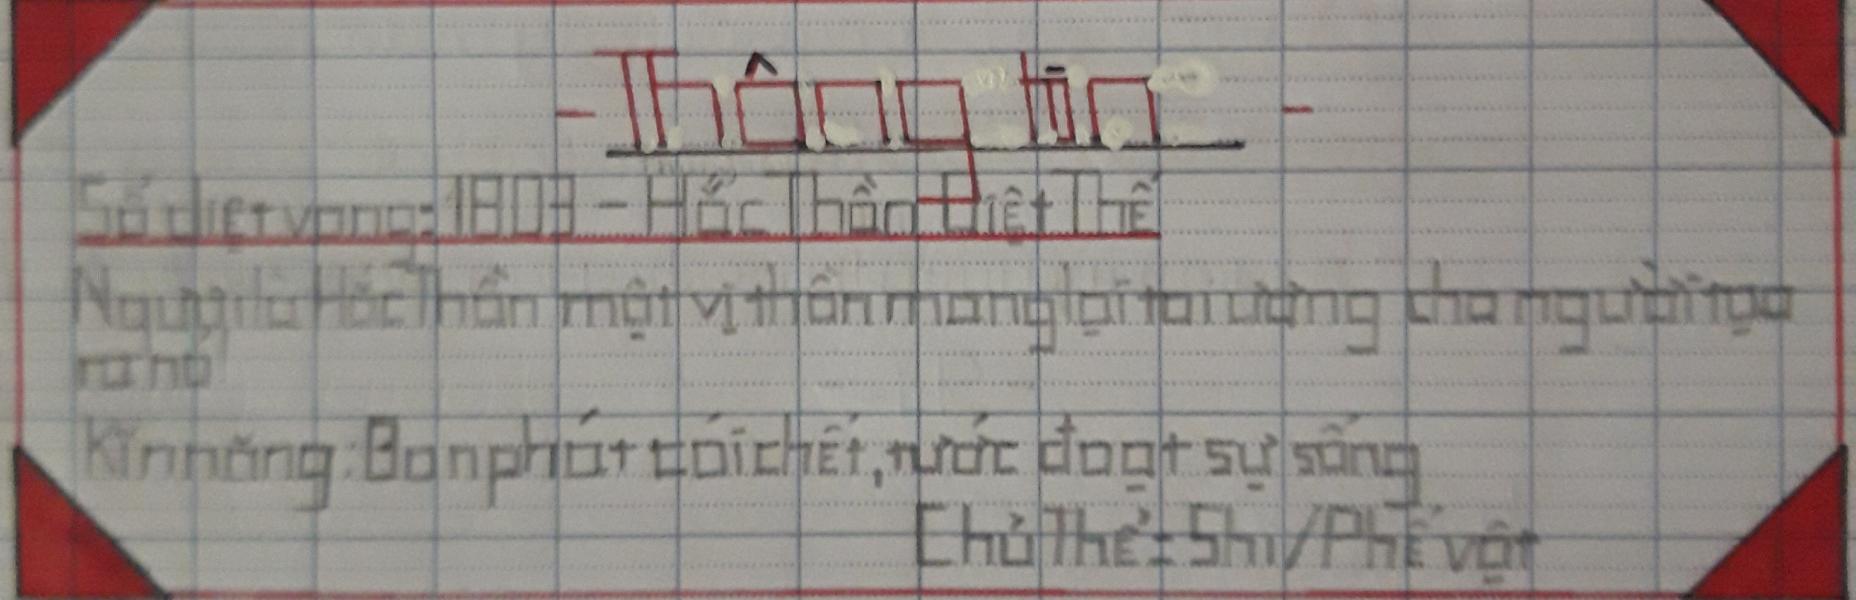 - Thông tin -
Số diệt vong: 1803 - Hắc Thần Diệt Thế
là Hắc Thần một vị thần mang lại tai ương cho người tạo
ra nó
Kĩ năng: Ban phát cái chết, nước đoạt sự sống
Chủ Thể: Shi/Phế vật